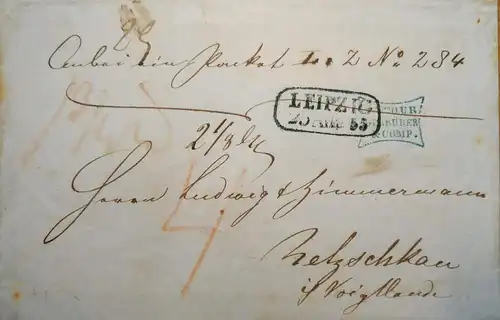 Anbei ein Packet L. Z No. 284
LEIPZIG
25 AUG 55
& COMP.
2 1/8 Pf
Herrn Ludwig & Zimmermann
Netzschkau
i/ Voigtlande